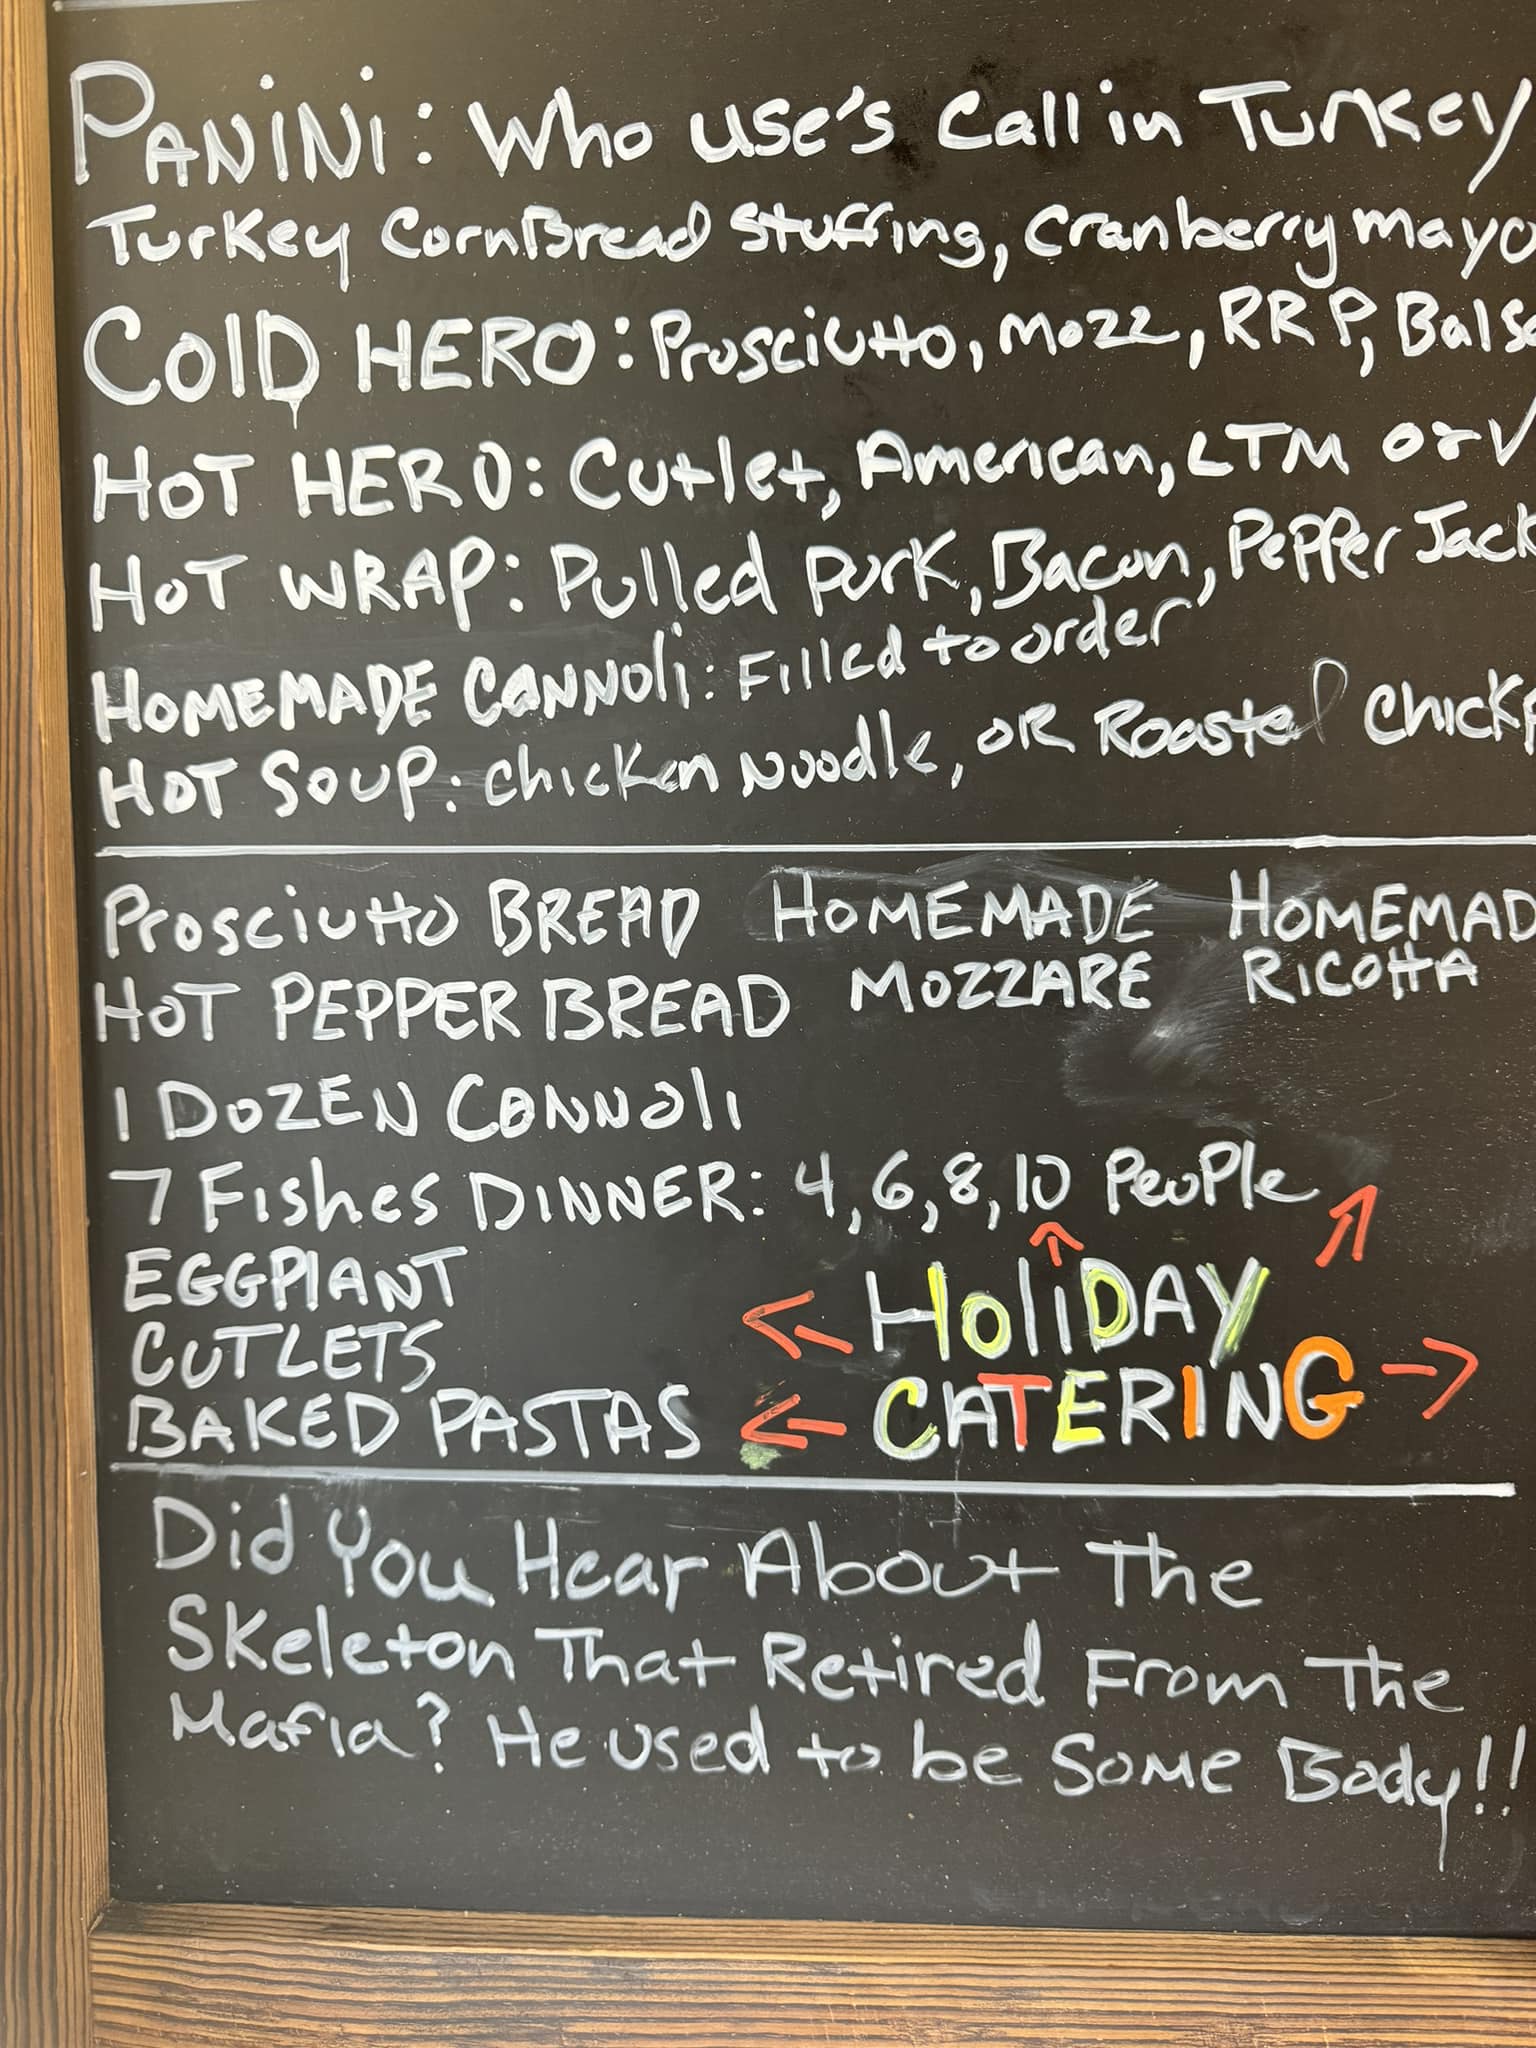 PANINI: Who USE's Call in Turkey
Turkey CornBread Stuffing, Cranberry mayo
COLD HERO: Prosciutto, Mozz, RRP, Bals
HOT HERO: Cutlet, American, LTM or V
HOT WRAP: Pulled Pork, Bacon, Pepper Jack
HOMEMADE CANNOLI: Filled to order
HOT SOUP: Chicken Noodle, OR Roasted Chick
Prosciutto BREAD
HOT PEPPER BREAD
HOMEMADE
MOZZARE
HOMEMAD
RICOTTA
1 DOZEN CONNOLI
7 Fishes DINNER: 4, 6, 8, 10 People
EGGPLANT
CUTLETS
BAKED PASTAS
HOLIDAY
CATERING
Did You Hear About The
Skeleton That Retired From The
Mafia? He used to be Some Body!!